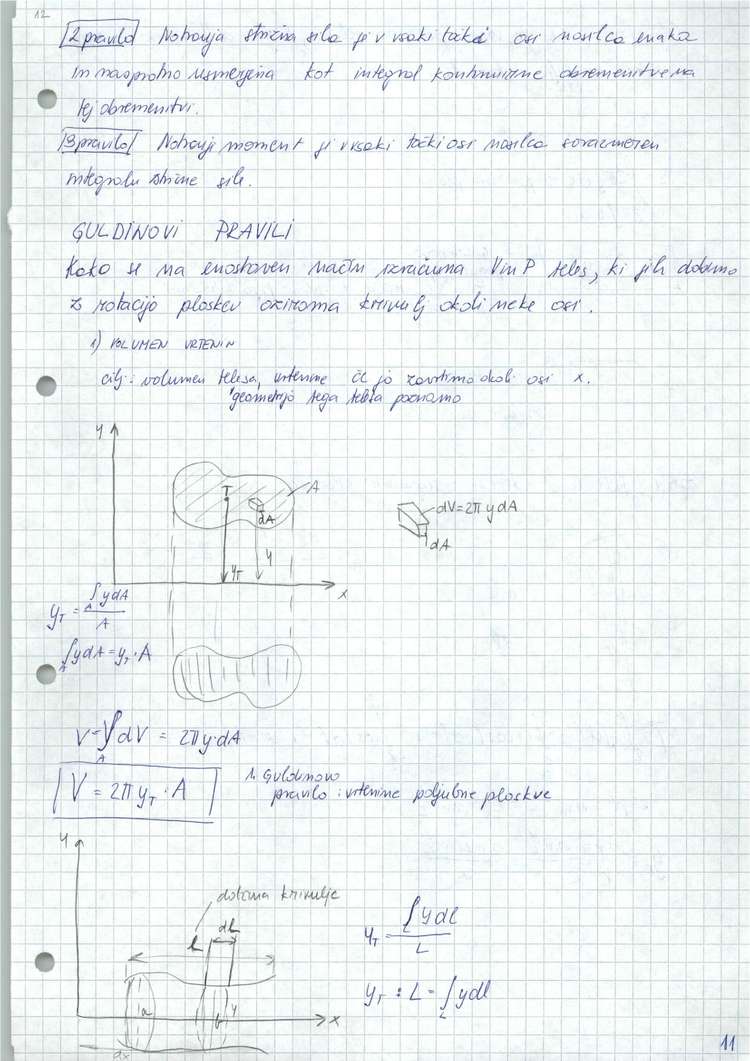 12
2 pravilo Notranja strižna sila je v vsaki točki osi nosilca enaka
in nasprotno usmerjena kot integral kontinuirne obremenitve na
tej obremenitvi.
3 pravilo Notranji moment je v vsaki točki osi nosilca sorazmeren
integralu strižne sile.
GULDINOVI PRAVILI
Kako se na enostaven način izračuna V in P teles, ki jih dobimo
z rotacijo ploskev oziroma krivulj okoli neke osi.
1) VOLUMEN VRTENIN
cilj: volumen telesa, vrtenine če jo zavrtimo okoli osi x.
geometrijo tega telesa poznamo
y
T
A
dA
dV=2π y dA
dA
y_T
y
x
y_T = ∫_A y dA / A
∫_A y dA = y_T · A
V = ∫_A dV = 2π y · dA
V = 2π y_T · A
1. Guldinovo
pravilo : vrtenine poljubne ploskve
y
dolžina krivulje
L
dL
y_T = ∫_L y dl / L
y_T · L = ∫_L y dl
a
b
y
x
dx
11